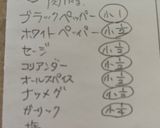 ブラックペッパー 小1
ホワイトペッパー 小1/2
セージ 小1/2
コリアンダー 小1/2
オールスパイス 小1/2
ナツメグ 小1/2
ガーリック 小1/2
塩